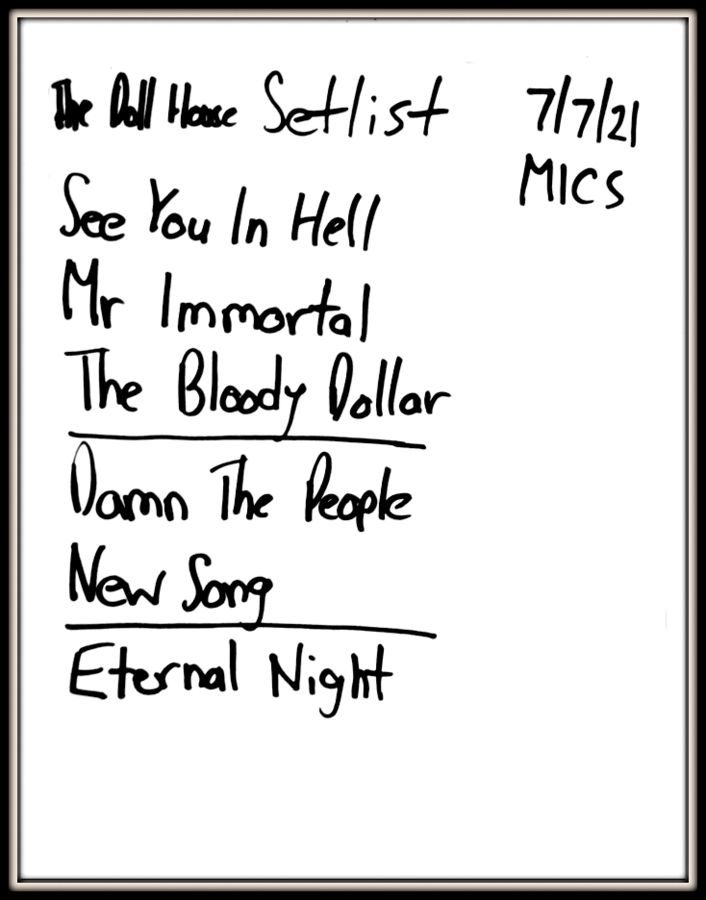 The Doll House Setlist 7/7/21
MICS
See You In Hell
Mr Immortal
The Bloody Dollar
Damn The People
New Song
Eternal Night